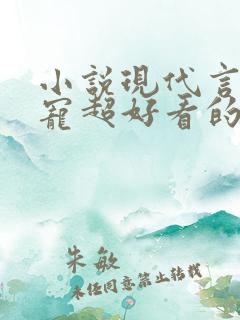 小説現代言
寵超好看的
朱敏
未經同意禁止轉載